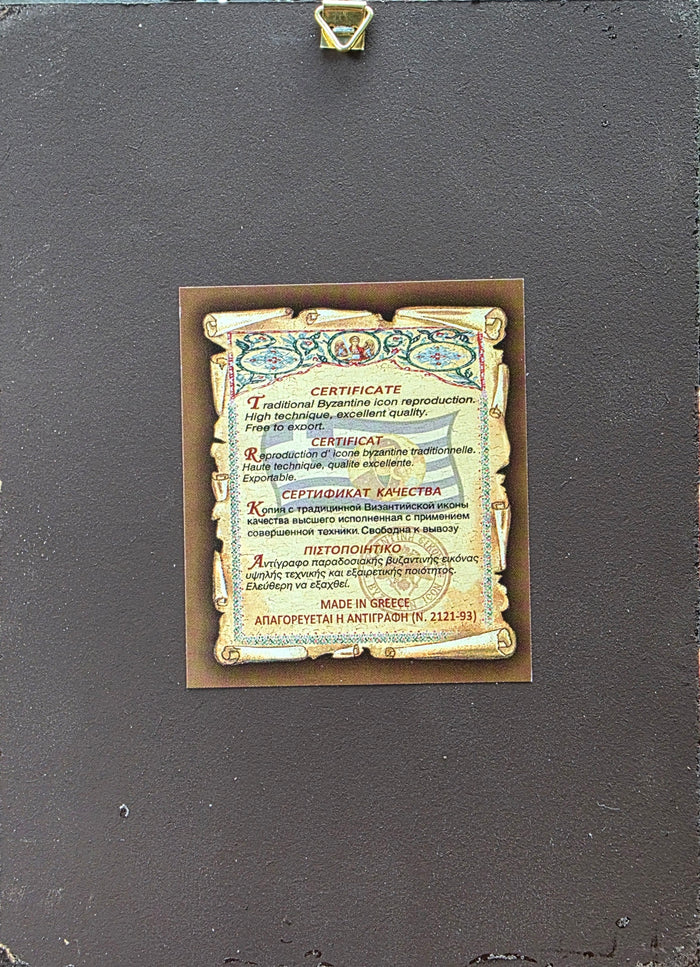 CERTIFICATE
Traditional Byzantine icon reproduction.
High technique, excellent quality.
Free to export.
CERTIFICAT
Reproduction d' icone byzantine traditionnelle.
Haute technique, qualite excellente.
Exportable.
СЕРТИФИКАТ КАЧЕСТВА
Копия с традицинной Византийской иконы
качества высшего исполненная с примением
совершенной техники. Свободна к вывозу
ΠΙΣΤΟΠΟΙΗΤΙΚΟ
Αντίγραφο παραδοσιακής βυζαντινής εικόνας
υψηλής τεχνικής και εξαιρετικής ποιότητος.
Ελεύθερη να εξαχθεί.
MADE IN GREECE
ΑΠΑΓΟΡΕΥΕΤΑΙ Η ΑΝΤΙΓΡΑΦΗ (Ν. 2121-93)